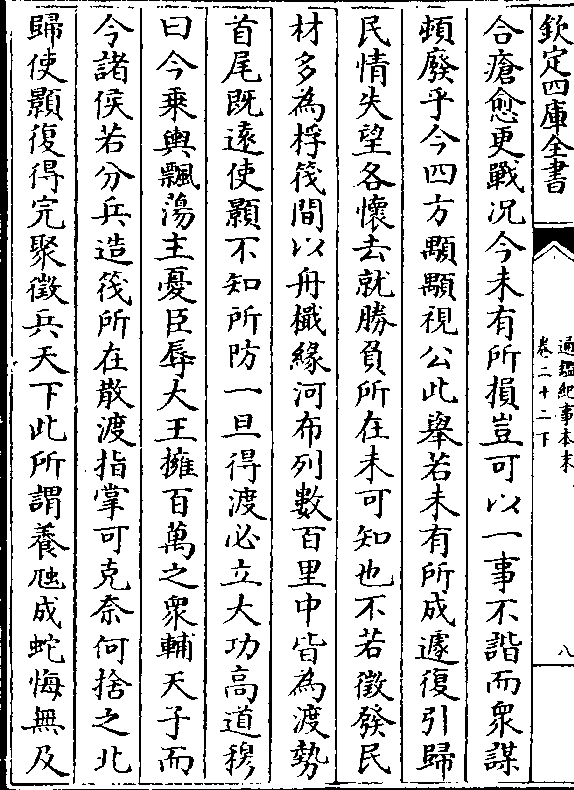 欽定四庫全書
通鑑紀事本末
卷二十二下
八
合瘡愈更戰况今未有所損豈可以一事不諧而衆謀
頓廢乎今四方顒顒視公此舉若未有所成遽復引歸
民情失望各懷去就勝負所在未可知也不若徵發民
材多為桴筏間以舟檝緣河布列數百里中皆為渡勢
首尾既遠使顥不知所防一旦得渡必立大功高道穆
曰今乘輿飄蕩主憂臣辱大王擁百萬之衆輔天子而
令諸侯若分兵造筏所在散渡指掌可克奈何捨之北
歸使顥復得完聚徵兵天下此所謂養虺成蛇悔無及